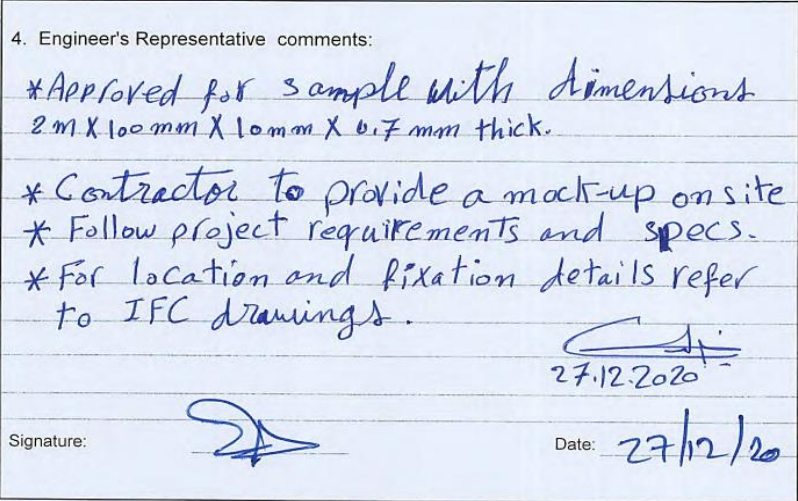 4. Engineer's Representative comments:
*Approved for sample with dimensions
2m X 100mm X 10mm X 0.7 mm thick.
* Contractor to provide a mock-up on site
* Follow project requirements and specs.
* For location and fixation details refer
to IFC drawings.
27.12.2020
Signature:
Date: 27/12/20